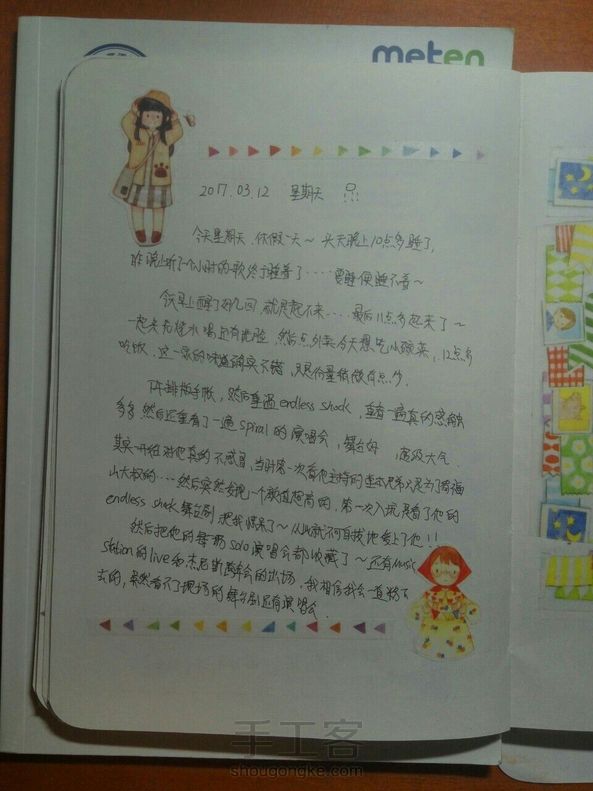 meten
2017.03.12 星期天
今天星期天,休假一天~ 头天晚上10点多睡了,
昨晚上听了一个小时的歌终于睡着了····要睡便睡不着~
今天早上醒了好几回,就是起不来····最后11点多起来了~
一起来先烧水喝还有洗脸,然后点外卖今天想吃小碗菜,12点多
吃饭,这一家的味道确实不错,只是份量稍微有点少.
下午排版手帐,然后重温endless shock,重看一遍真的感触
多多,然后还重看了一遍spiral的演唱会,舞台好 ,高级大气.
其实一开始对他真的不感冒,当时第一次看他主持的 只是为了看福
山大叔的····然后突然发现一个颜值超高的,第一次入坑是看了他的
endless shock舞台剧,把我惊呆了~从此就不可自拔地爱上了他!!
然后把他的舞剧solo演唱会都收藏了~还有Music
station的live和杰尼斯跨年会的出场,我相信我会一直粉下
去的,虽然看不了现场的舞台剧还有演唱会.
手工客
shougongke.com